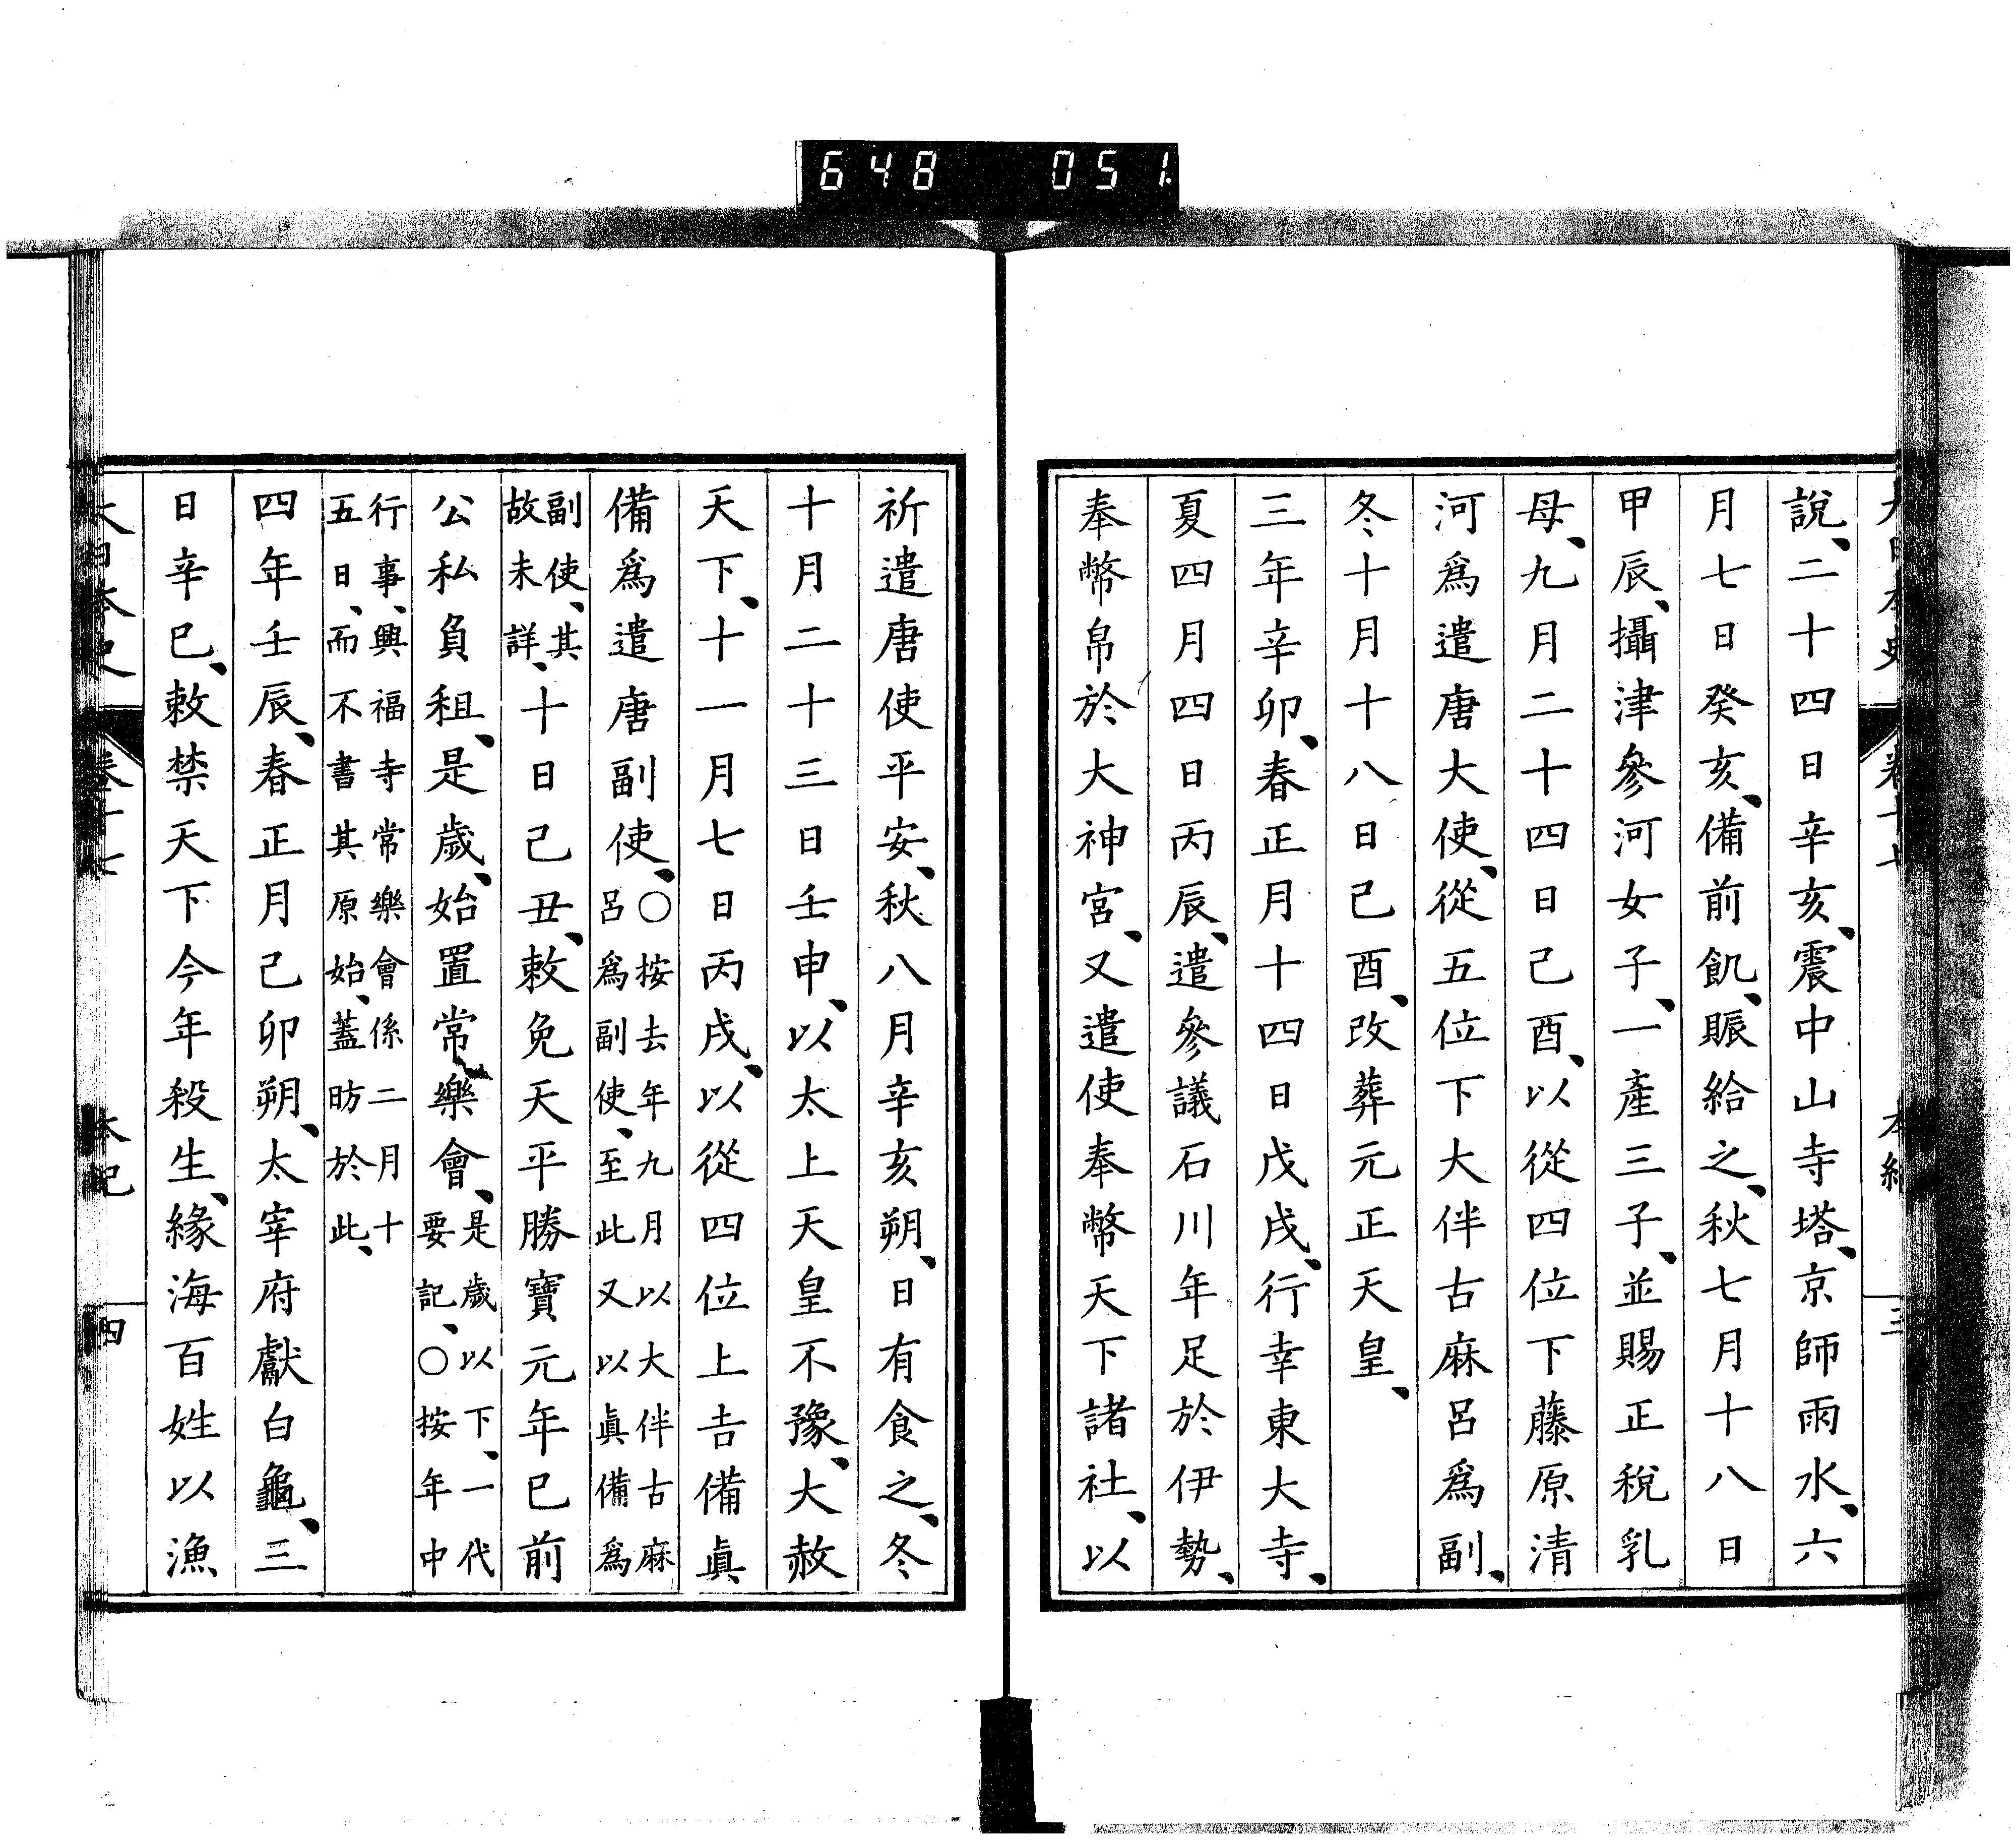 648 051
大日本史 卷十七 本紀 三
說、二十四日辛亥、震中山寺塔、京師雨水、六
月七日癸亥、備前飢、賑給之、秋七月十八日
甲辰、攝津參河女子、一產三子、並賜正稅乳
母、九月二十四日己酉、以從四位下藤原清
河爲遣唐大使、從五位下大伴古麻呂爲副、
冬十月十八日己酉、改葬元正天皇、
三年辛卯、春正月十四日戊戌、行幸東大寺、
夏四月四日丙辰、遣參議石川年足於伊勢、
奉幣帛於大神宮、又遣使奉幣天下諸社、以
祈遣唐使平安、秋八月辛亥朔、日有食之、冬
十月二十三日壬申、以太上天皇不豫、大赦
天下、十一月七日丙戌、以從四位上吉備眞
備爲遣唐副使、○按去年九月以大伴古麻
呂爲副使、至此又以眞備爲
副使、其
故未詳、十日己丑、敕免天平勝寶元年已前
公私負租、是歲、始置常樂會、是歲以下、一代
要記、○按年中
行事、興福寺常樂會係二月十
五日、而不書其原始、蓋昉於此、
四年壬辰、春正月己卯朔、太宰府獻白龜、三
日辛巳、敕禁天下今年殺生、緣海百姓以漁
大日本史 卷十七 本紀 四